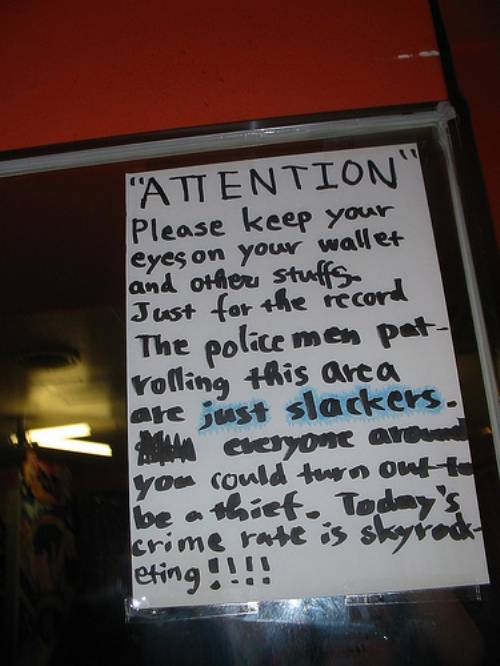 "ATTENTION"
Please keep your
eyes on your wallet
and other stuffs.
Just for the record
The police men pat-
rolling this area
are just slackers.
everyone around
you could turn out to
be a thief. Today's
crime rate is skyrock-
eting!!!!